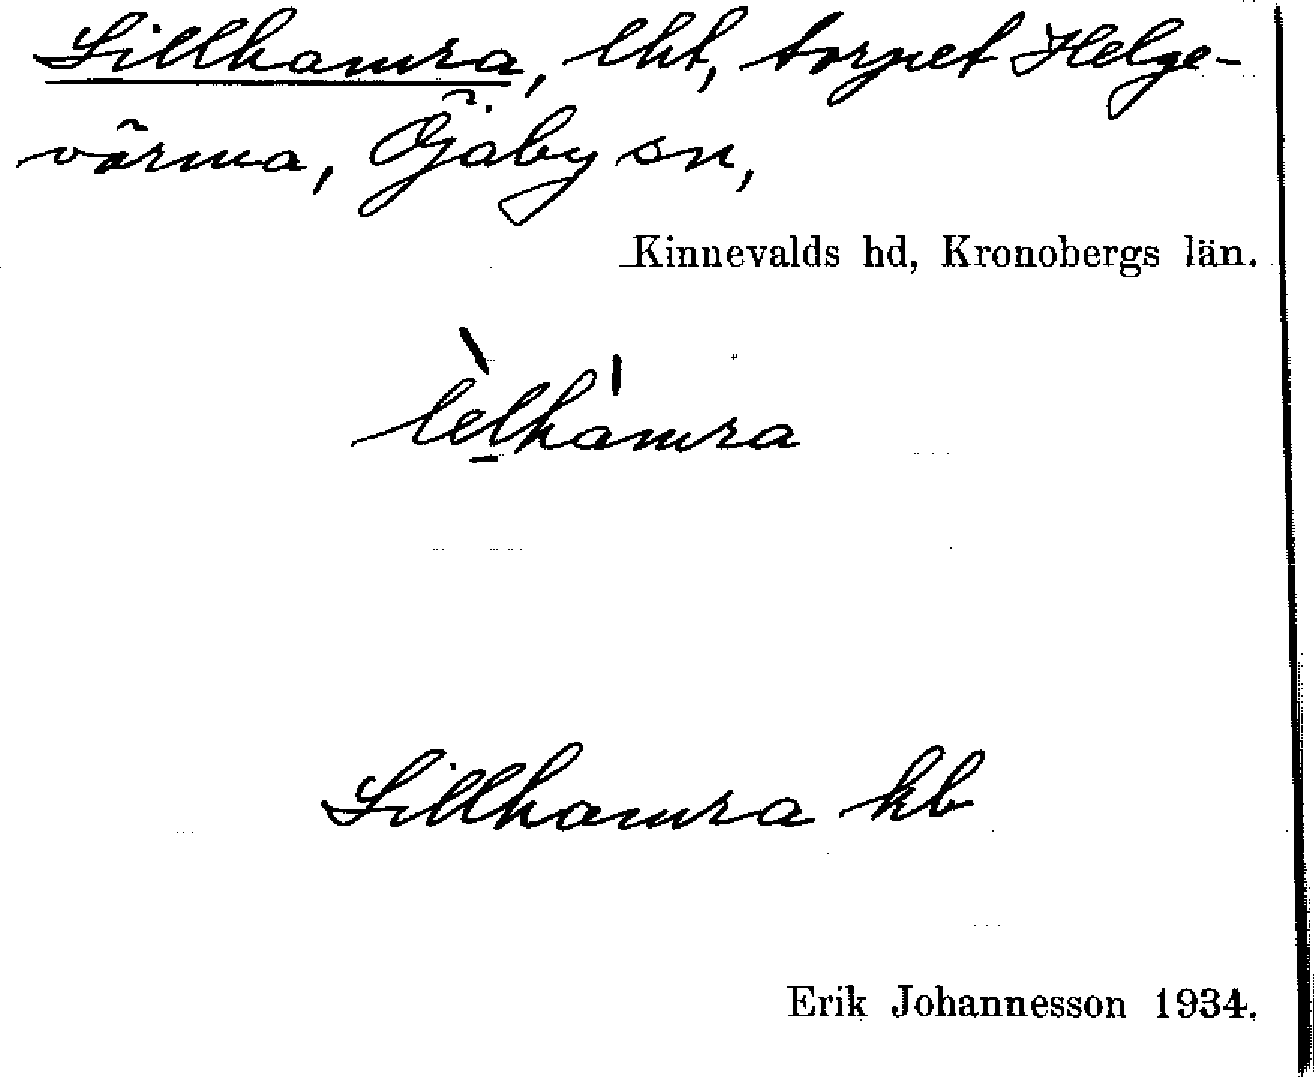 Lillhamra, lht, torpet Helge-
värma, Öjaby sn,
Kinnevalds hd, Kronobergs län.
lèl̠há̍mra
Lillhamra kb
Erik Johannesson 1934.